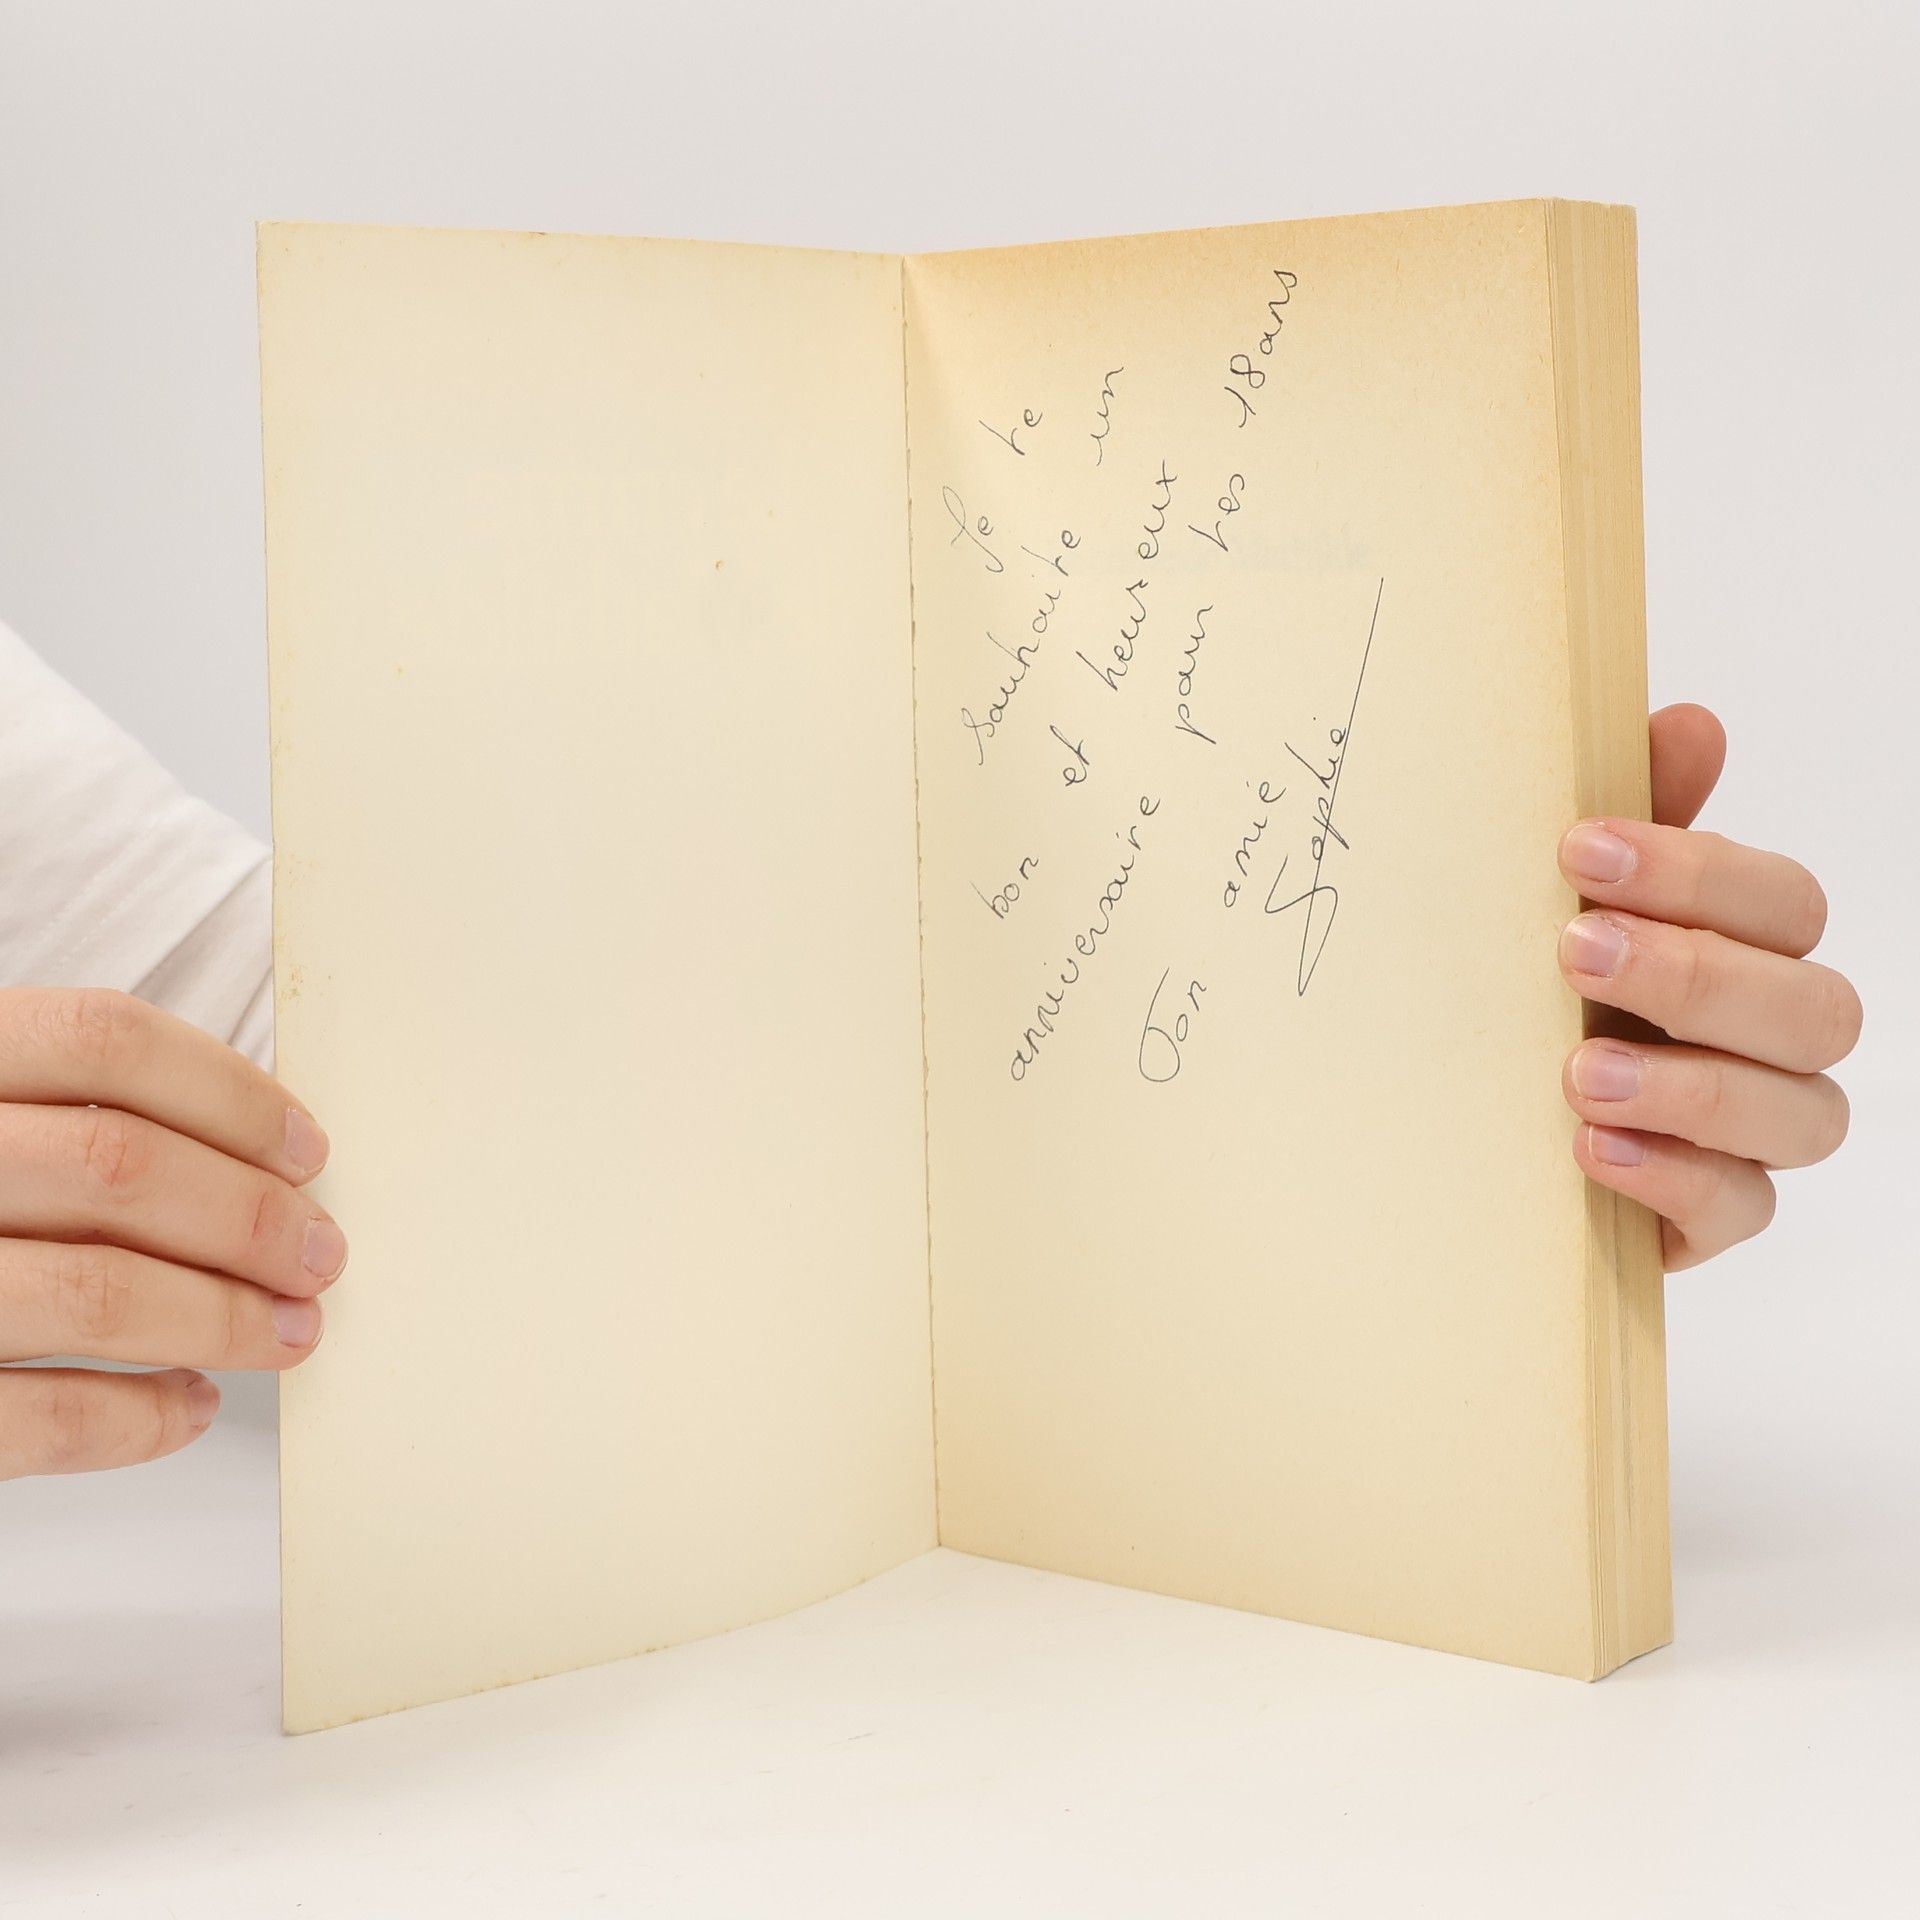 Je te
souhaite un
bon et heureux
anniversaire pour tes 18 ans
Ton amie
Sophie